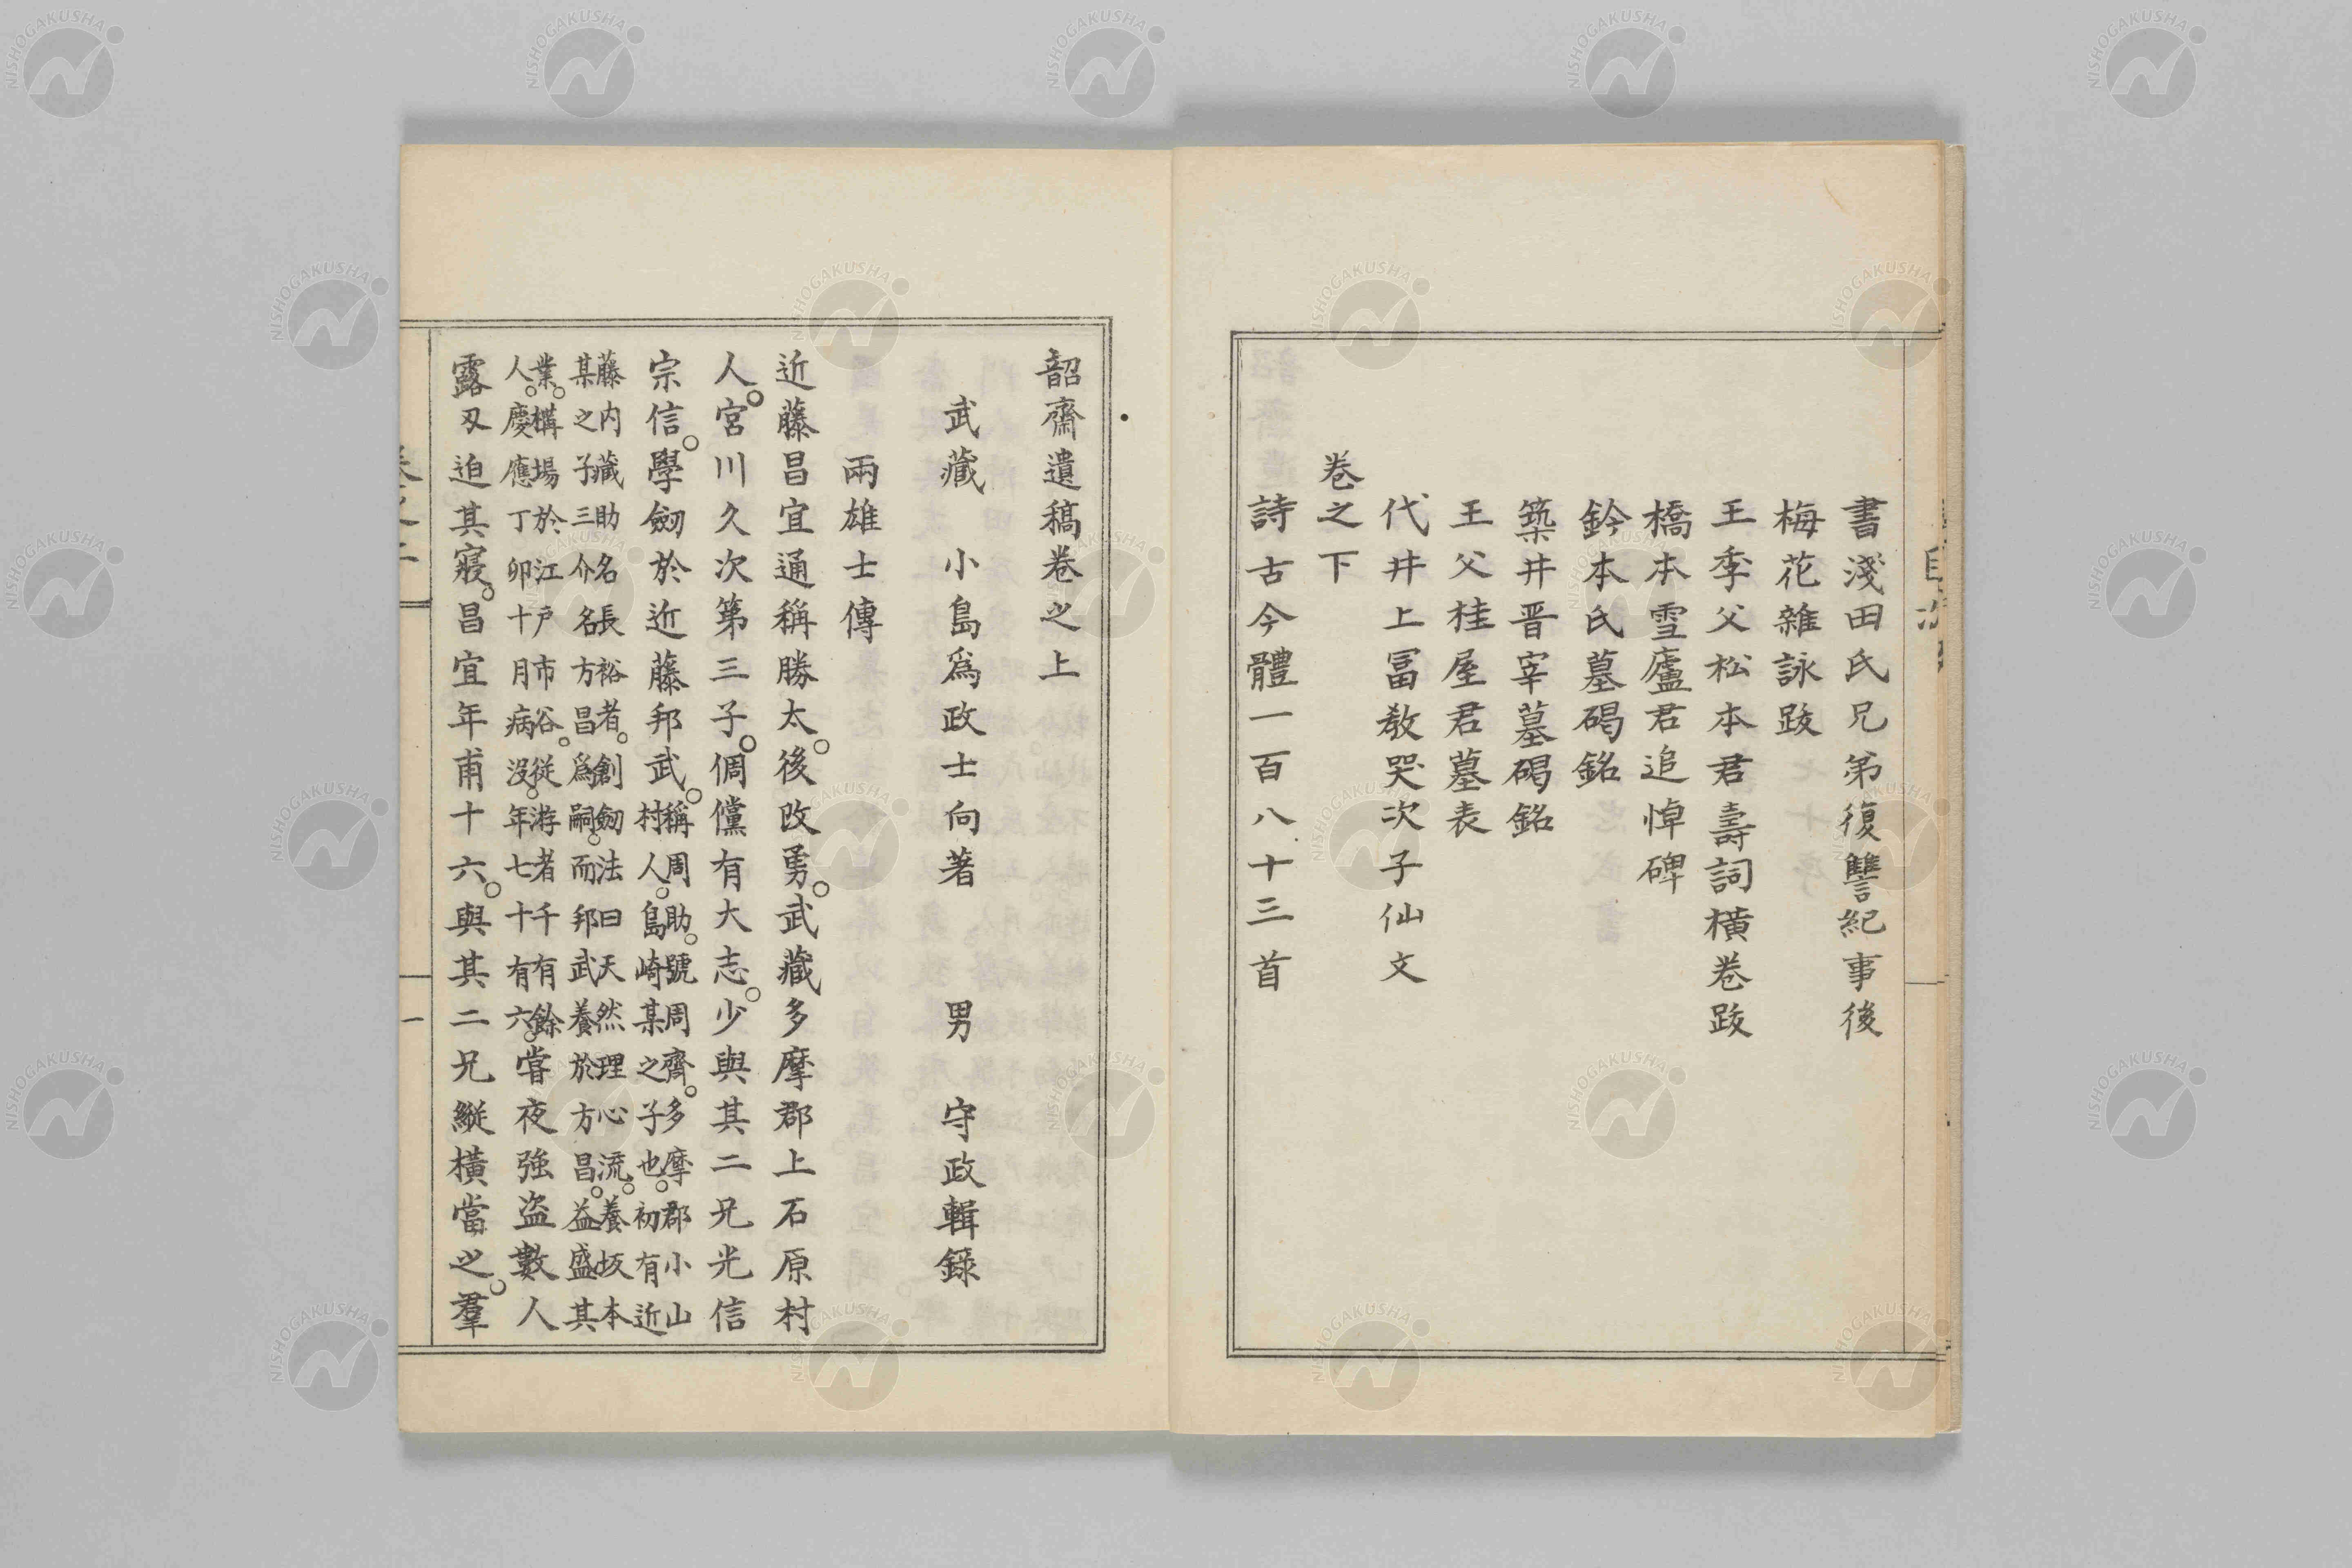 書淺田氏兄弟復讐紀事後
梅花雜詠跋
王季父松本君壽詞橫卷跋
橋本雪廬君追悼碑
鈴本氏墓碣銘
築井晋宰墓碣銘
王父桂屋君墓表
代井上冨教哭次子仙文
卷之下
詩古今體一百八十三首
韶齋遺稿卷之上
武藏 小島爲政士向著 男 守政輯錄
兩雄士傳
近藤昌宜通稱勝太。後改勇。武藏多摩郡上石原村
人。宮川久次第三子。倜儻有大志。少與其二兄光信
宗信。學劒於近藤邦武。稱周助。號周齊。多摩郡小山
村人。島崎某之子也。初有近
藤内藏助名長裕者。創劒法曰天然理心流。養坂本
某之子三介名方昌爲嗣。而邦武養於方昌。益盛其
業。構場於江戶市谷。從游者千有餘
人。慶應丁卯十月病沒。年七十有六。嘗夜強盜數人
露刃迫其寢。昌宜年甫十六。與其二兄縱橫當之。羣
一
NISHOGAKUSHA